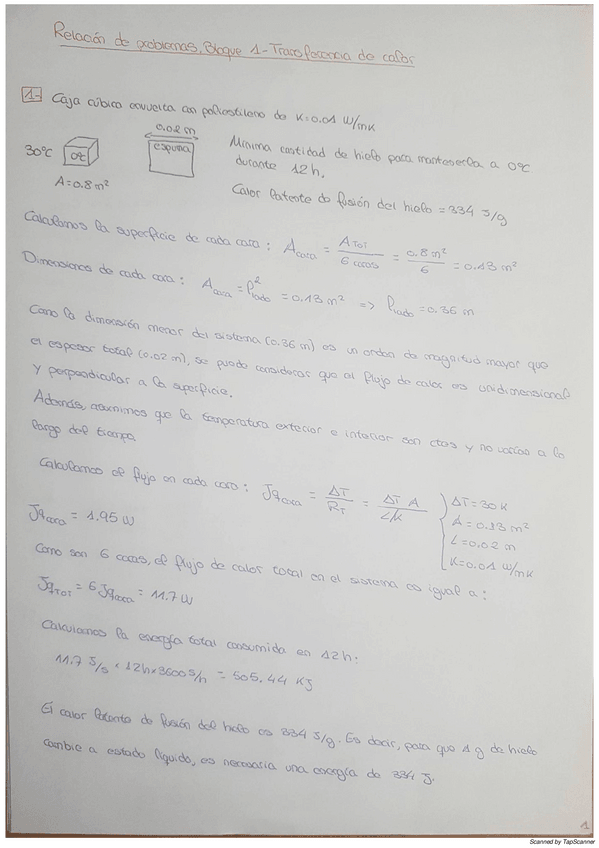 Relación de problemas. Bloque 1 - Transferencia de calor
1- Caja cúbica envuelta con poliestileno de K=0.01 W/mK
0.02 m
30ºC
0ºC
espuma
A=0.8 m²
Mínima cantidad de hielo para mantenerla a 0ºC
durante 12h.
Calor latente de fusión del hielo = 334 J/g
Calculamos la superficie de cada cara: A cara = A TOT / 6 caras = 0.8 m² / 6 = 0.13 m²
Dimensiones de cada cara: A cara = l² lado = 0.13 m² => l lado = 0.36 m
Como la dimensión menor del sistema (0.36 m) es un orden de magnitud mayor que
el espesor total (0.02 m), se puede considerar que el flujo de calor es unidimensional
y perpendicular a la superficie.
Además, asumimos que la temperatura exterior e interior son ctes y no varían a lo
largo del tiempo
Calculamos el flujo en cada cara: Jq cara = ΔT / R T = ΔT A / L/K
ΔT=30K
A=0.13 m²
L=0.02 m
K=0.01 W/mK
Jq cara = 1.95 W
Como son 6 caras, el flujo de calor total en el sistema es igual a:
Jq TOT = 6 Jq cara = 11.7 W
Calculamos la energía total consumida en 12h:
11.7 J/s × 12h × 3600 s/h = 505.44 KJ
El calor latente de fusión del hielo es 334 J/g. Es decir, para que 1 g de hielo
cambie a estado líquido, es necesaria una energía de 334 J.
1
Scanned by TapScanner